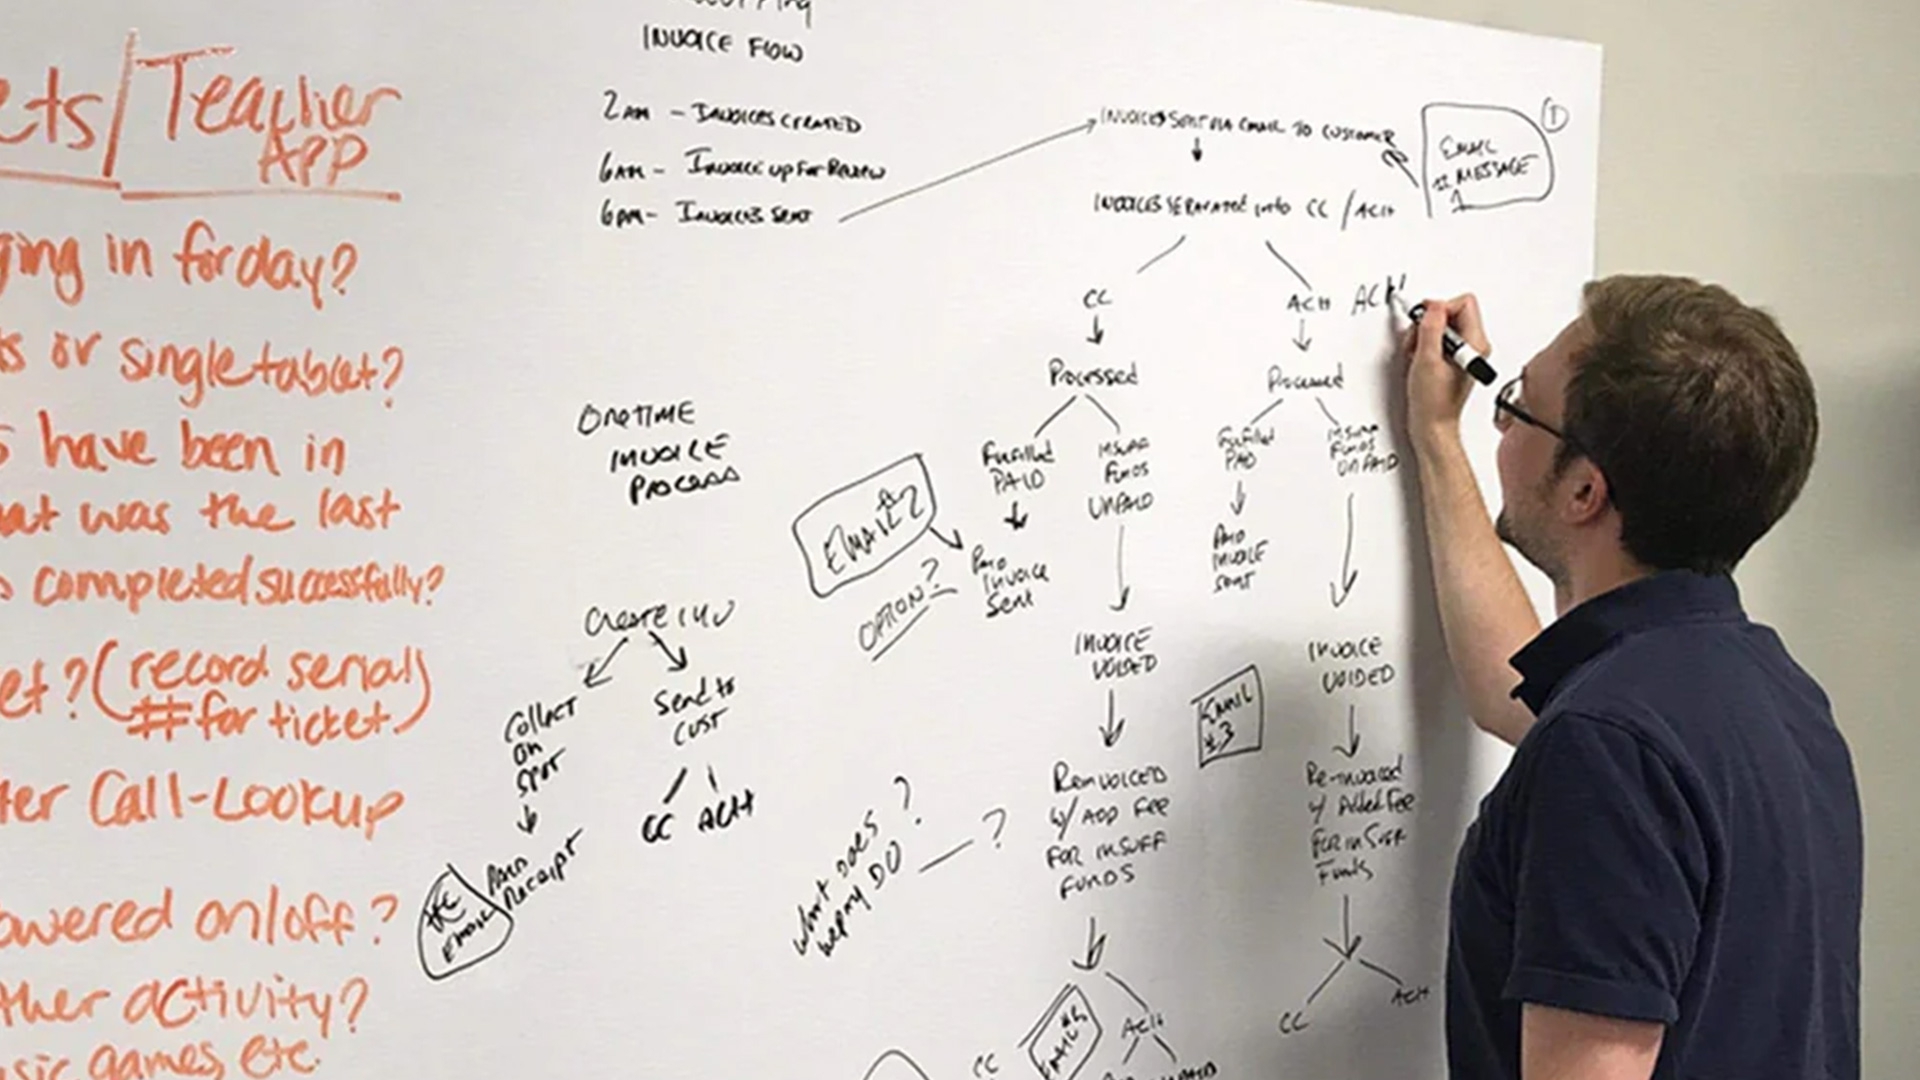 /Teacher
APP
in for day?
or single tablet?
have been in
was the last
completed successfully?
? (record serial
# for ticket)
Call-Lookup
on/off?
activity?
games, etc.
INVOICE FLOW
2AM - INVOICES CREATED
6AM - INVOICE UP FOR REVIEW
6PM - INVOICES SENT
INVOICES SENT VIA EMAIL TO CUSTOMER
EMAIL
MESSAGE
1
INVOICES SEPARATED INTO CC / ACH
CC
ACH
ACH
Processed
Processed
Fulfilled
PAID
INSUFF
FUNDS
UNPAID
Fulfilled
PAID
INSUFF
FUNDS
UNPAID
EMAIL #2
OPTION?
PAID
INVOICE
Sent
PAID
INVOICE
SENT
INVOICE
VOIDED
INVOICE
VOIDED
EMAIL
#3
Reinvoiced
w/ ADD FEE
FOR INSUFF
FUNDS
Re-invoiced
w/ Added Fee
FOR INSUFF
Funds
CC
ACH
CC
ACH
ONE TIME
INVOICE
PROCESS
Create INV
Collect
on
spot
Send to
cust
CC ACH
PAID
Receipt
EMAIL
What does ?
DO ?